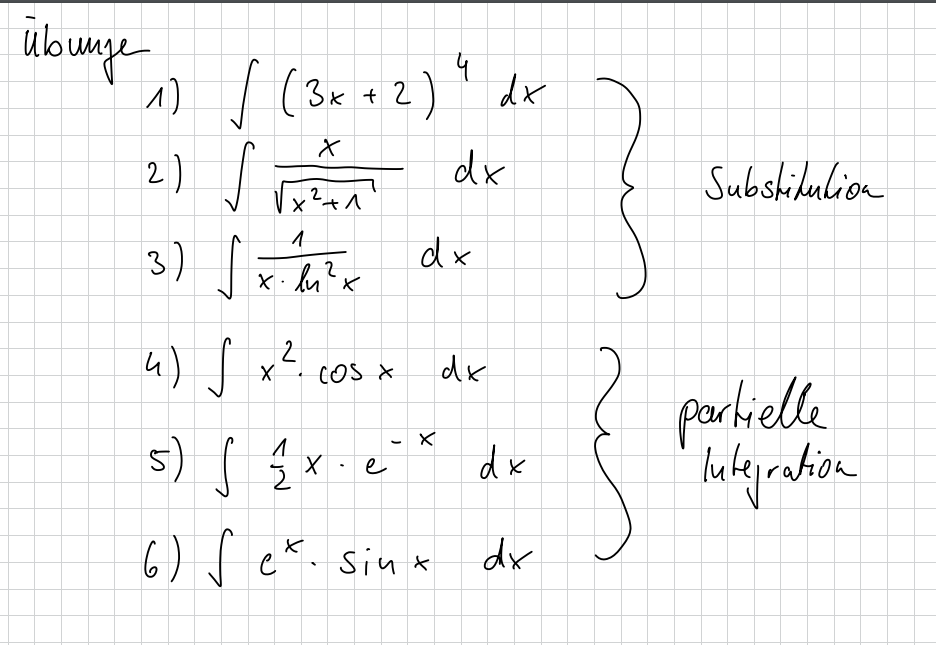 Übunge
1) ∫ (3x + 2)⁴ dx
2) ∫ x/√(x²+1) dx
3) ∫ 1/(x · ln²x) dx
Substitution
4) ∫ x² · cos x dx
5) ∫ 1/2 x · e^(-x) dx
6) ∫ eˣ · sin x dx
partielle
Integration